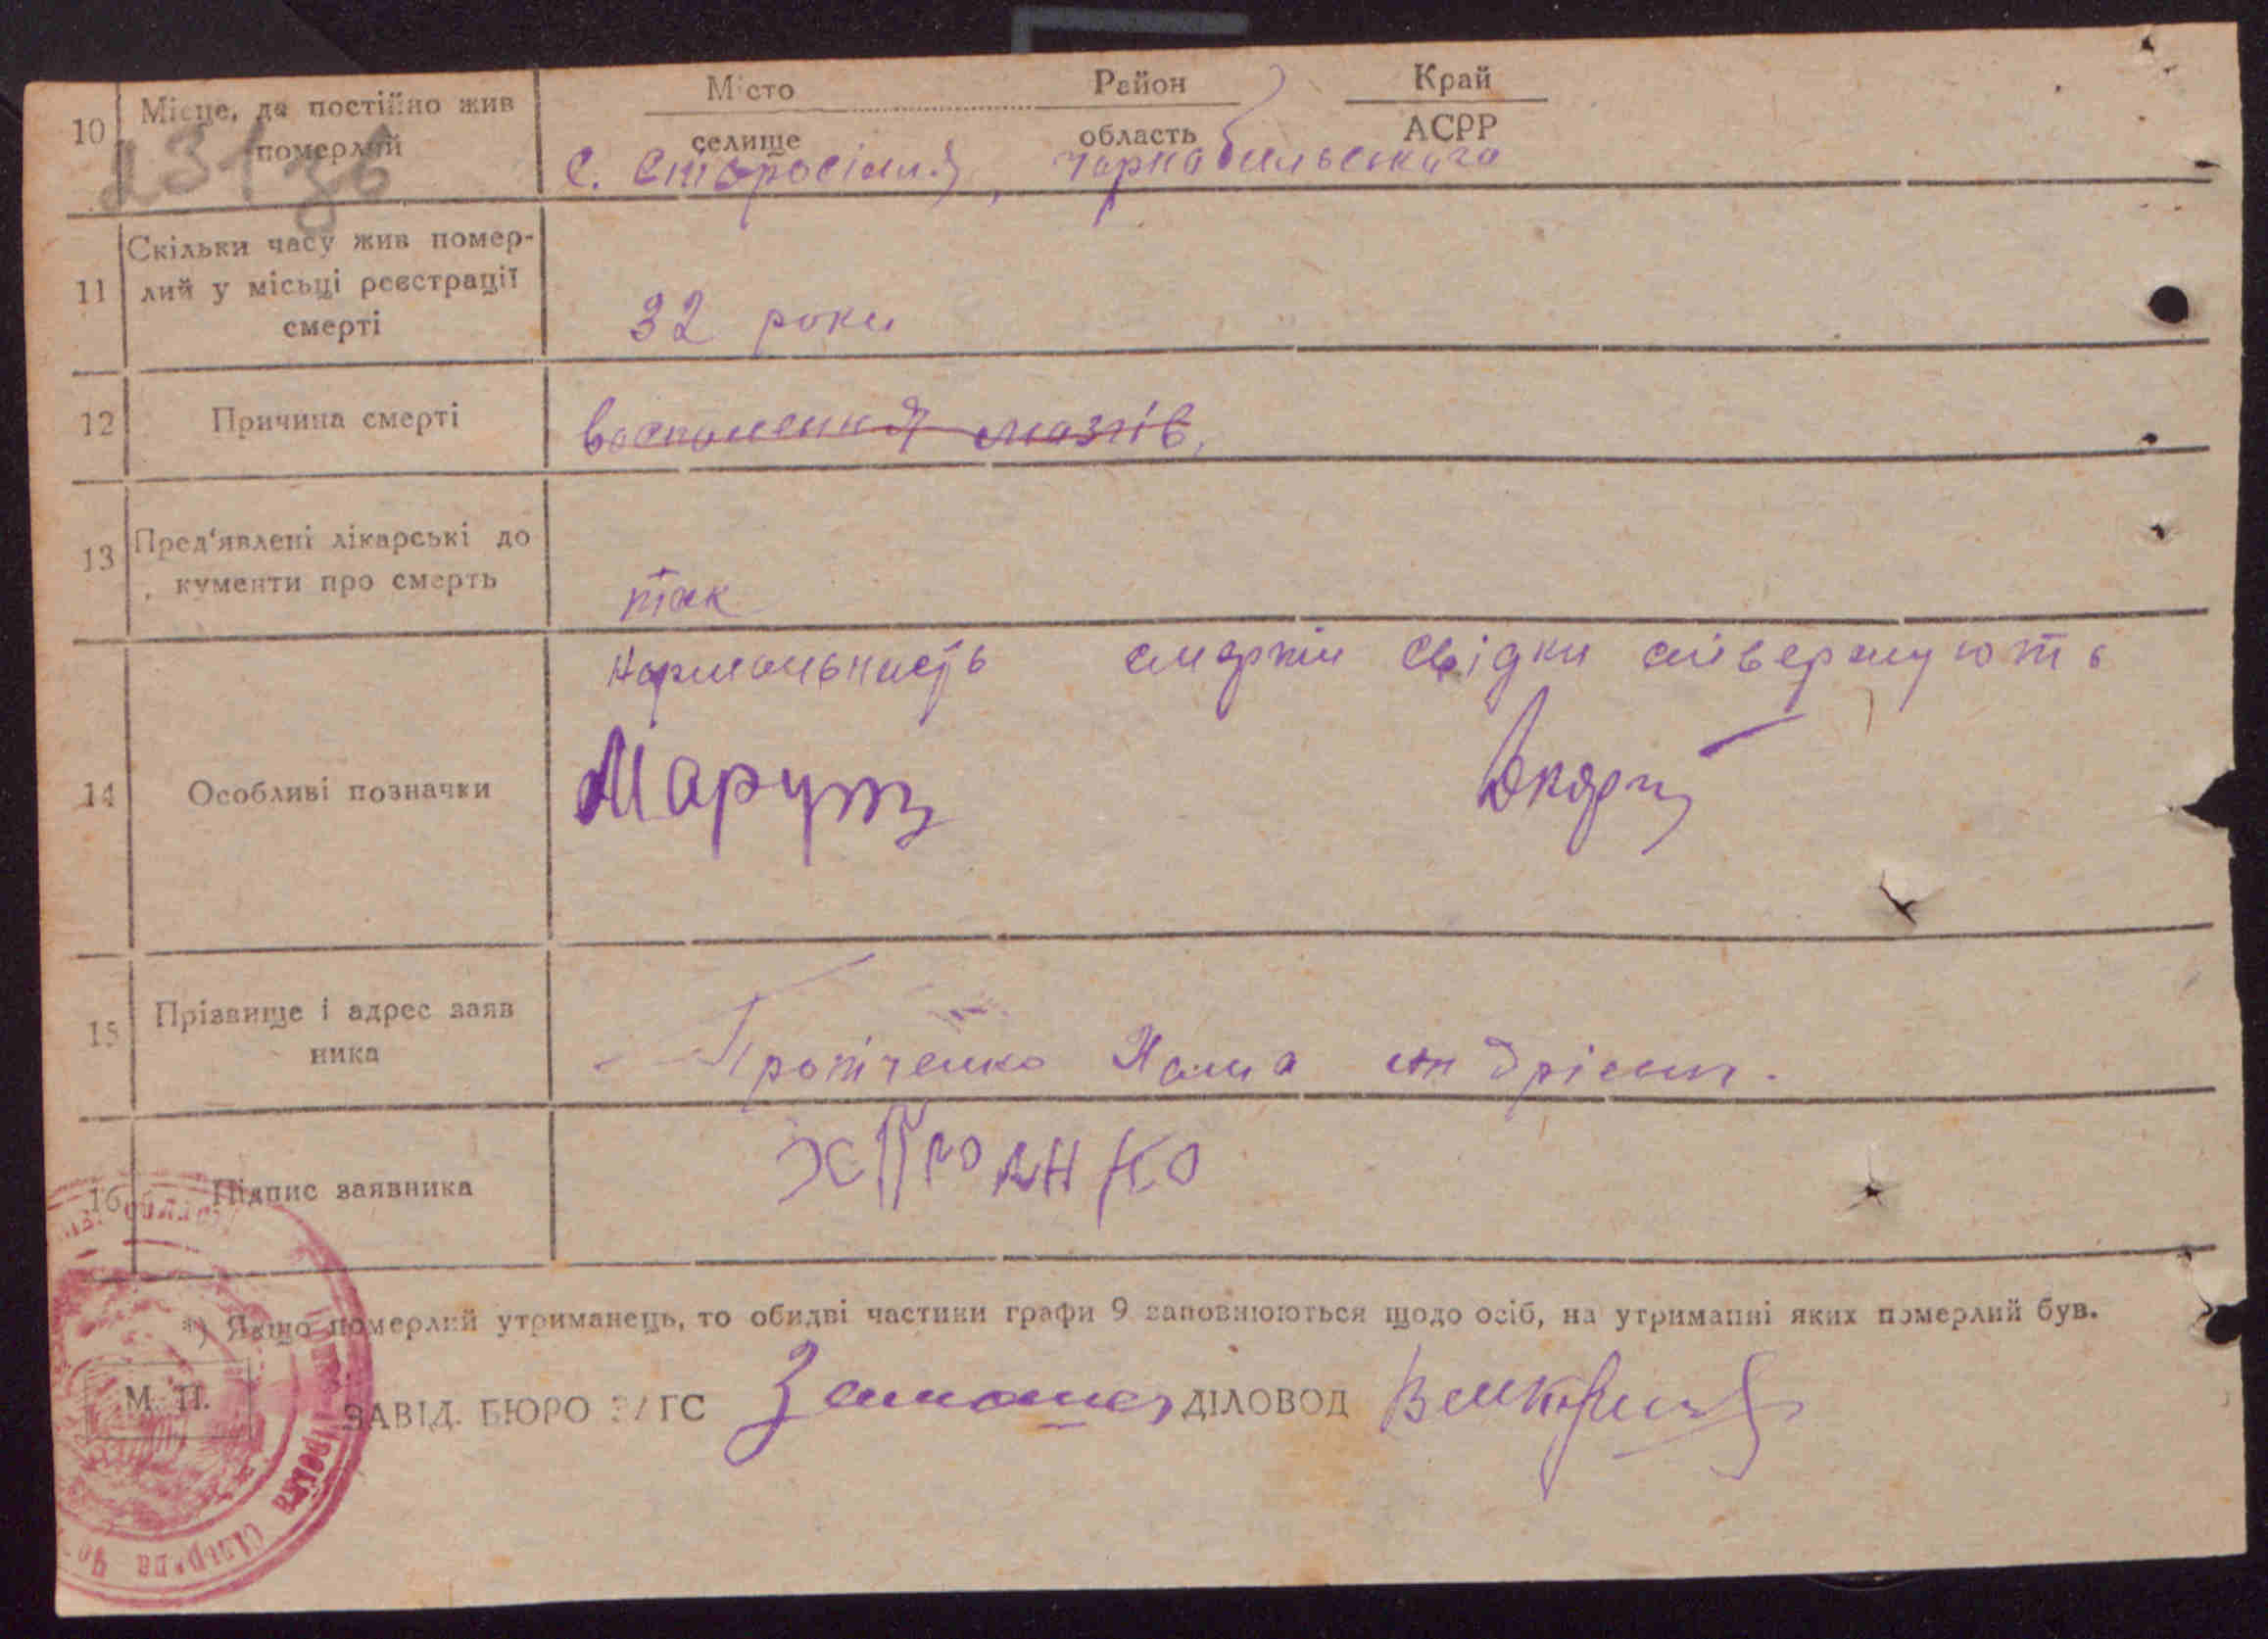 10 Місце, де постійно жив померлий
231 36
Місто Район Край
селище область АСРР
с. Старосілля, Чарнобильського
11 Скільки часу жив помер-
лий у місьці реєстрації
смерті
32 роки
12 Причина смерті
воспаления мазгів.
13 Пред'явлені лікарські до
кументи про смерть
так
нармальность смерти свідки ствержують
Марущ
14 Особливі позначки
15 Прізвище і адрес заяв
ника
Протченко Андрієв.
16 Підпис заявника
*) Якщо померлий утриманець, то обидві частини графи 9 заповнюються щодо осіб, на утриманні яких померлий був.
М. П.
ЗАВІД. БЮРО ЗАГС ДІЛОВОД